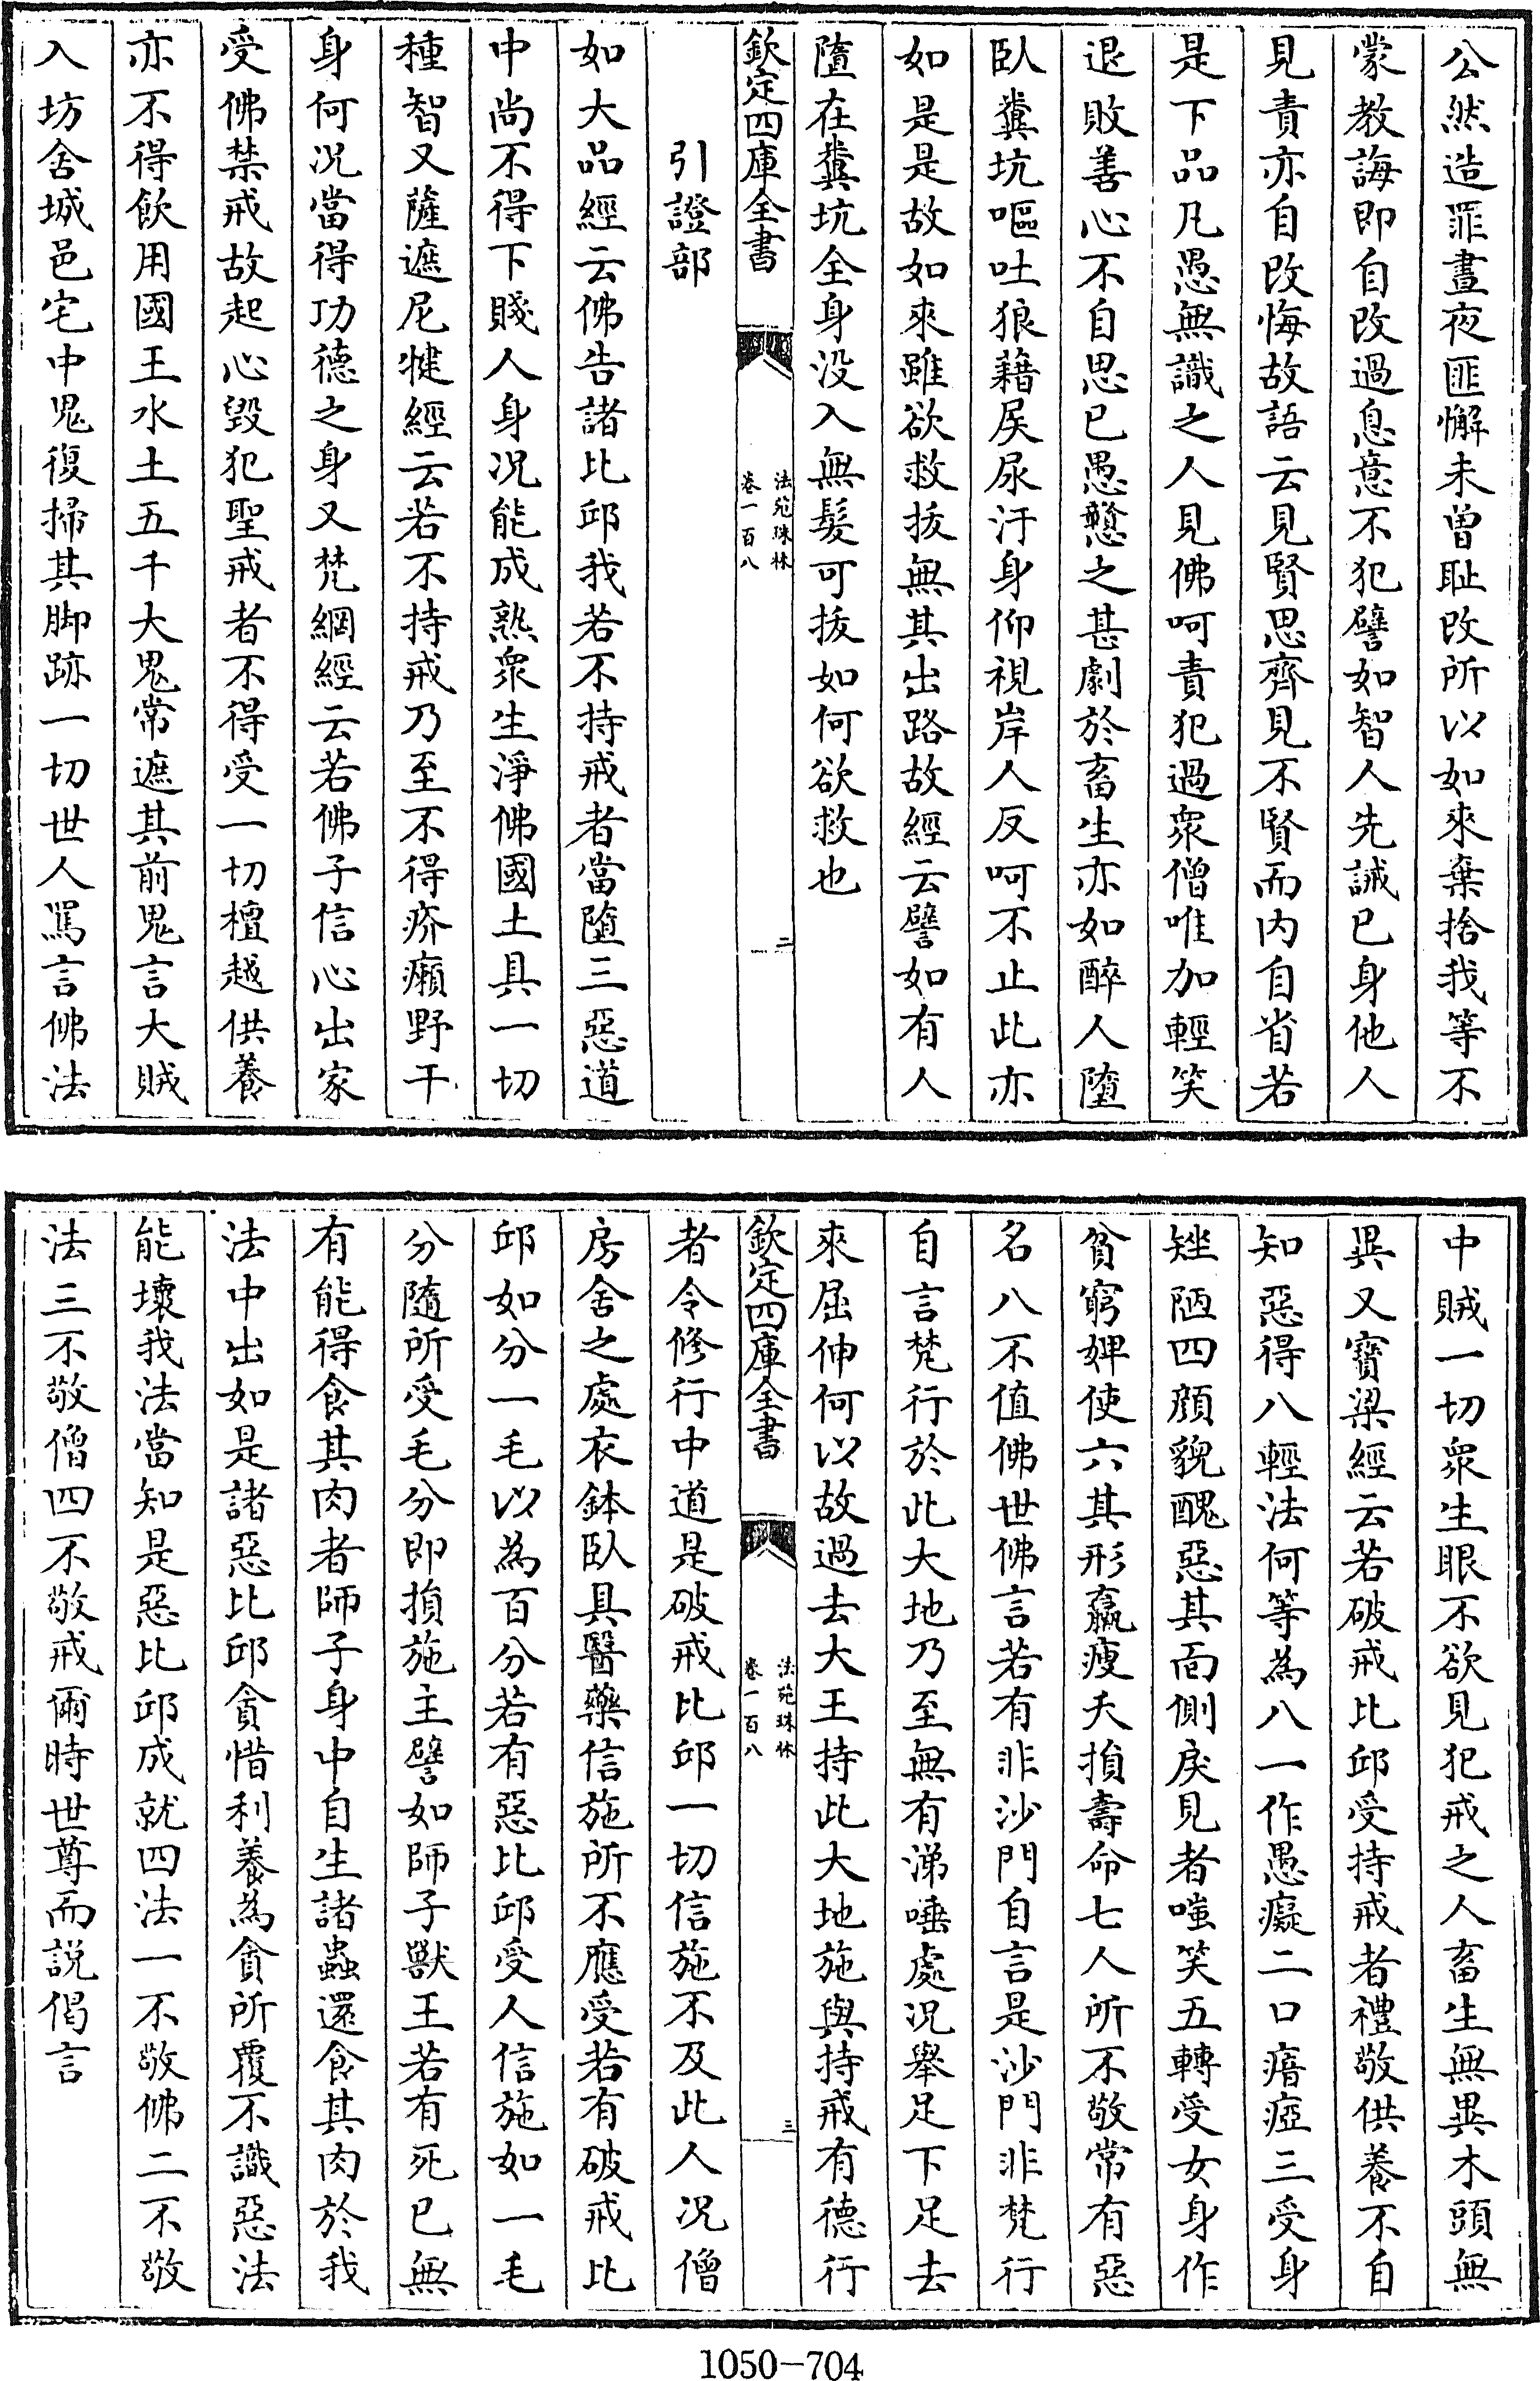 公然造罪晝夜匪懈未曽耻改所以如來棄捨我等不
蒙教誨即自改過息意不犯譬如智人先誡已身他人
見責亦自改悔故語云見賢思齊見不賢而内自省若
是下品凡愚無識之人見佛呵責犯過衆僧唯加輕笑
退敗善心不自思已愚戇之甚劇於畜生亦如醉人墮
臥糞坑嘔吐狼藉屎尿汙身仰視岸人反呵不止此亦
如是是故如來雖欲救拔無其出路故經云譬如有人
墮在糞坑全身没入無髮可拔如何欲救也
欽定四庫全書
法苑珠林
卷一百八
二
引證部
如大品經云佛告諸比邱我若不持戒者當墮三惡道
中尚不得下賤人身况能成熟衆生淨佛國土具一切
種智又薩遮尼犍經云若不持戒乃至不得疥癩野干
身何况當得功德之身又梵網經云若佛子信心出家
受佛禁戒故起心毀犯聖戒者不得受一切檀越供養
亦不得飲用國王水土五千大鬼常遮其前鬼言大賊
入坊舍城邑宅中鬼復掃其脚跡一切世人罵言佛法
中賊一切衆生眼不欲見犯戒之人畜生無異木頭無
異又寶梁經云若破戒比邱受持戒者禮敬供養不自
知惡得八輕法何等為八一作愚癡二口瘖瘂三受身
矬陋四顔貌醜惡其面側戾見者嗤笑五轉受女身作
貧窮婢使六其形羸瘦夭損壽命七人所不敬常有惡
名八不值佛世佛言若有非沙門自言是沙門非梵行
自言梵行於此大地乃至無有涕唾處况舉足下足去
來屈伸何以故過去大王持此大地施與持戒有德行
欽定四庫全書
法苑珠林
卷一百八
三
者令修行中道是破戒比邱一切信施不及此人况僧
房舍之處衣鉢臥具醫藥信施所不應受若有破戒比
邱如分一毛以為百分若有惡比邱受人信施如一毛
分隨所受毛分即損施主譬如師子獸王若有死已無
有能得食其肉者師子身中自生諸蟲還食其肉於我
法中出如是諸惡比邱貪惜利養為貪所覆不識惡法
能壞我法當知是惡比邱成就四法一不敬佛二不敬
法三不敬僧四不敬戒爾時世尊而説偈言
1050-704